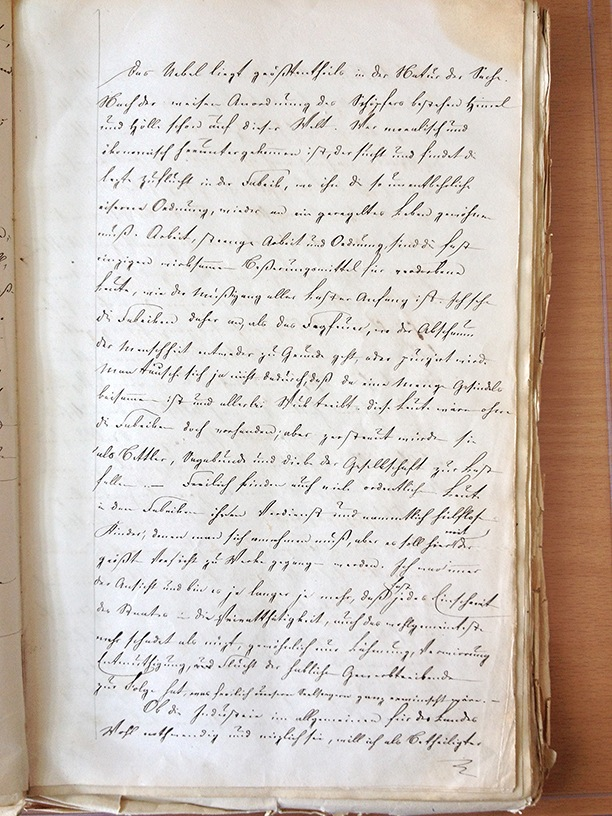 Das Uebel liegt größtentheils in der Natur der Sache.
Nach der weisen Anordnung des Schöpfers bestehen Himmel
und Hölle schon auf dieser Welt. Wer moralisch und
ökonomisch heruntergekommen ist, der sucht und findet die
lezte Zuflucht in der Fabrik, wo ihn die so unentbehrliche
eiserne Ordnung, wieder an ein geregeltes Leben gewöhnen
muß. Arbeit, strenge Arbeit und Ordnung, sind die fast
einzigen wirksamen Besserungsmittel für verdorbene
Leute, wie der Müßiggang aller Laster Anfang ist. Ich sehe
die Fabriken daher an, als das Fegfeuer, wo der Abschaum
der Menschheit entweder zu Grunde geht, oder purgirt wird.
Man täusche sich ja nicht dadurch, daß da eine Menge Gesindels
beisammen ist und allerlei diese Leute wären ohne
die Fabriken doch vorhanden, aber zerstreut würden sie
als Bettler, Vagabunde und Diebe der Gesellschaft zur Last
fallen. — Freilich finden auch viele ordentliche Leute
in den Fabriken ihren Verdienst und namentlich hülflose
Kinder, denen man sich annehmen muß, aber es soll hier mit der
größten Vorsicht zu Werke gegangen werden. Ich war immer
der Ansicht und bin es je länger je mehr, daß fast jedes Einschreiten
des Staates in die Privatthätigkeit, auch das wohlgemeinteste
mehr schadet als nüzt, gewöhnlich nur Lähmung, Verwirrung
Entmuthigung, und Flucht der Gewerbtreibenden
zur Folge hat, was freilich unsern ganz erwünscht wäre. —
Ob die Industrie im allgemeinen für des Landes
Wohl nothwendig und nüzlich sei, will ich als Betheiligter